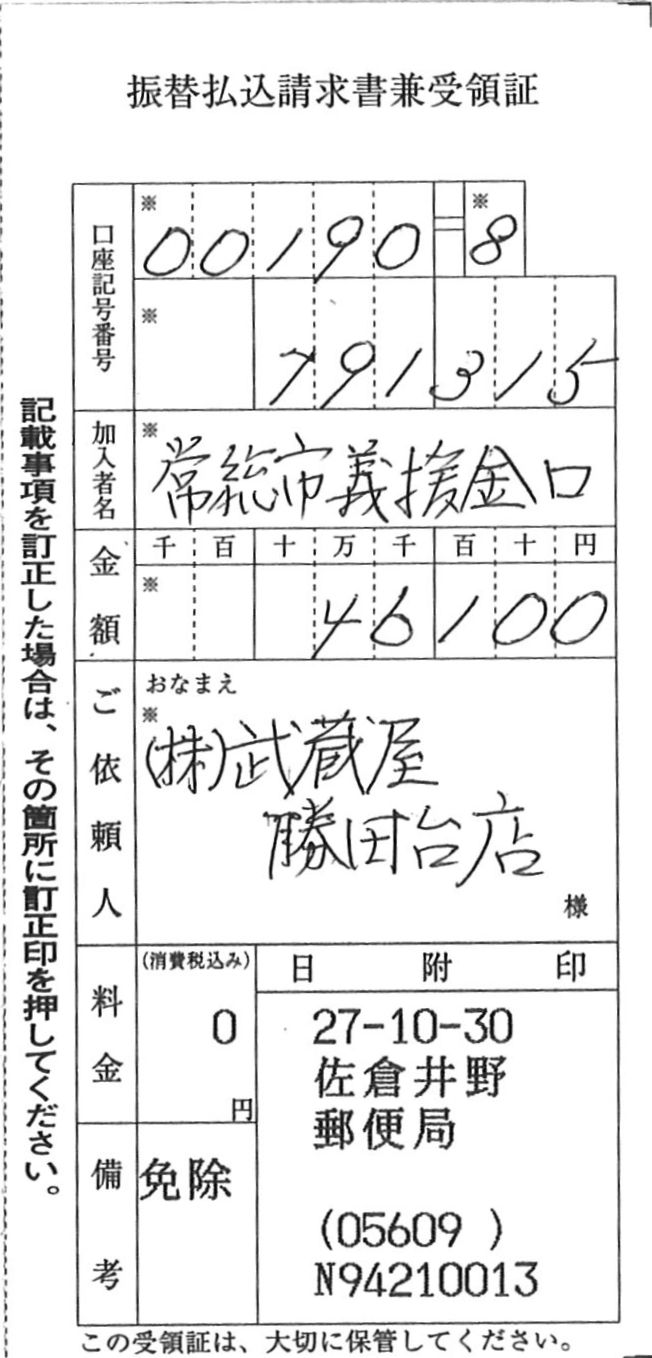 振替払込請求書兼受領証
口座記号番号
※
00190
=
※
8
※
791315
加入者名
※
常総市義援金口
金額
千 百 十 万 千 百 十 円
※
46100
ご依頼人
おなまえ
※
(株)武蔵屋
勝田台店
様
料金
(消費税込み)
0
円
日 附 印
27-10-30
佐倉井野
郵便局
(05609 )
N94210013
備考
免除
この受領証は、大切に保管してください。
記載事項を訂正した場合は、その箇所に訂正印を押してください。